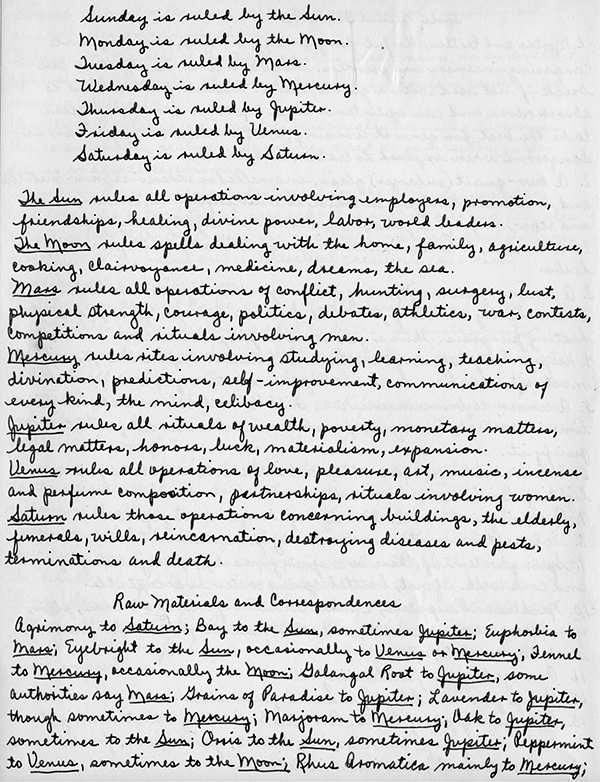 Sunday is ruled by the Sun.
Monday is ruled by the Moon.
Tuesday is ruled by Mars.
Wednesday is ruled by Mercury.
Thursday is ruled by Jupiter.
Friday is ruled by Venus.
Saturday is ruled by Saturn.
The Sun rules all operations involving employers, promotion,
friendships, healing, divine power, labor, world leaders.
The Moon rules spells dealing with the home, family, agriculture,
cooking, clairvoyance, medicine, dreams, the sea.
Mars rules all operations of conflict, hunting, surgery, lust,
physical strength, courage, politics, debates, athletics, war, contests,
competitions and rituals involving men.
Mercury rules rites involving studying, learning, teaching,
divination, predictions, self-improvement, communications of
every kind, the mind, celibacy.
Jupiter rules all rituals of wealth, poverty, monetary matters,
legal matters, honors, luck, materialism, expansion.
Venus rules all operations of love, pleasure, art, music, incense
and perfume composition, partnerships, rituals involving women.
Saturn rules those operations concerning buildings, the elderly,
funerals, wills, reincarnation, destroying diseases and pests,
terminations and death.
Raw Materials and Correspondences
Agrimony to Saturn; Bay to the Sun, sometimes Jupiter; Euphorbia to
Mars; Eyebright to the Sun, occasionally to Venus or Mercury; Fennel
to Mercury, occasionally the Moon; Galangal Root to Jupiter, some
authorities say Mars; Grains of Paradise to Jupiter; Lavender to Jupiter,
though sometimes to Mercury; Marjoram to Mercury; Oak to Jupiter,
sometimes to the Sun; Orris to the Sun, sometimes Jupiter; Peppermint
to Venus, sometimes to the Moon; Rhus Aromatica mainly to Mercury;